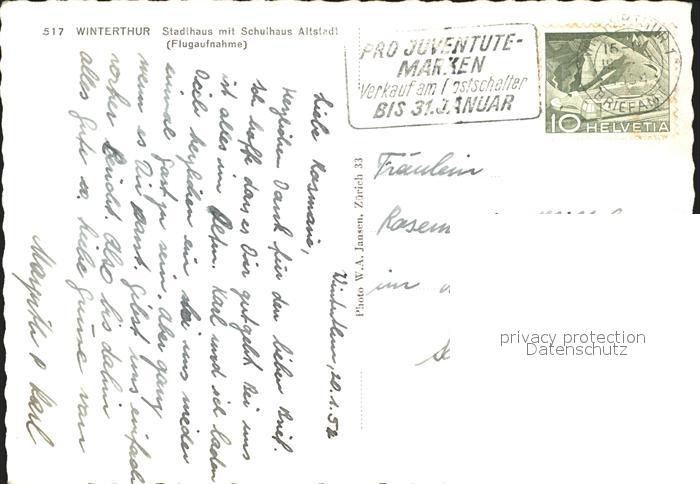 517 WINTERTHUR Stadthaus mit Schulhaus Altstadt
(Flugaufnahme)
PRO JUVENTUTE-
MARKEN
Verkauf am Postschalter
BIS 31. JANUAR
BRIEFAMT
10 HELVETIA
Photo W. A. Jansen, Zürich 33
Winterthur, 20.1.52
Liebe Rosmarie,
Herzlichen Dank für den lieben Brief.
Ich hoffe dass es Dir gut geht. Bei uns
ist alles im Karl und ich laden
Dich herzlichen ein bei uns wieder
einmal Gast zu sein. Aber ganz
wenn es Dir passt. Gibst uns einfach
vorher Bericht. Also bis dahin
alles Gute u. liebe Grüsse von
Karl
Fräulein
Rosem
im
privacy protection
Datenschutz